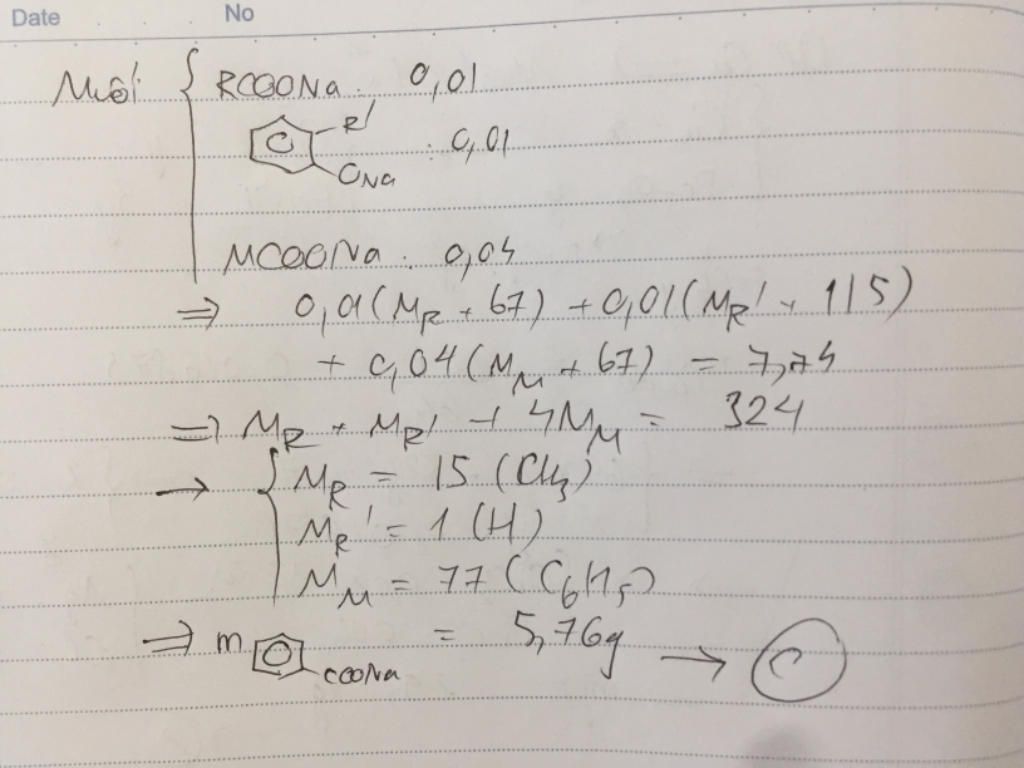 Date No
Muối { RCOONa : 0,01
R'
: 0,01
ONa
MCOONa : 0,04
⇒ 0,01(M_R + 67) + 0,01(M_R' + 115)
+ 0,04(M_M + 67) = 7,74
⇒ M_R + M_R' + 4M_M = 324
→ { M_R = 15 (CH₃)
M_R' = 1 (H)
M_M = 77 (C₆H₅)
⇒ m COONa = 5,76g → C